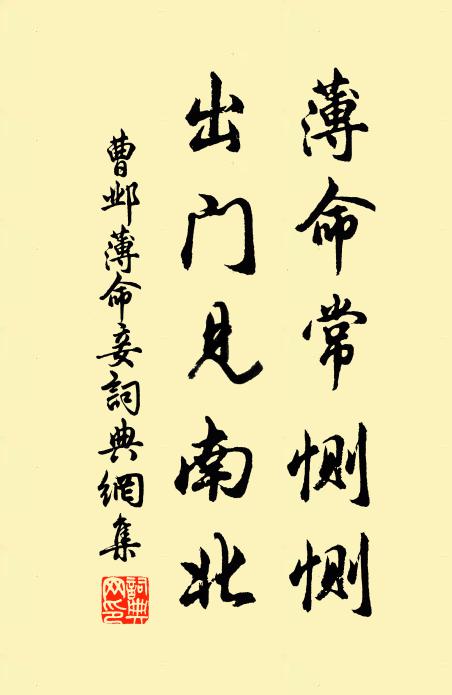 薄命常惻惻
出门見南北
曹邺薄命妾詞典網集
詞典网印